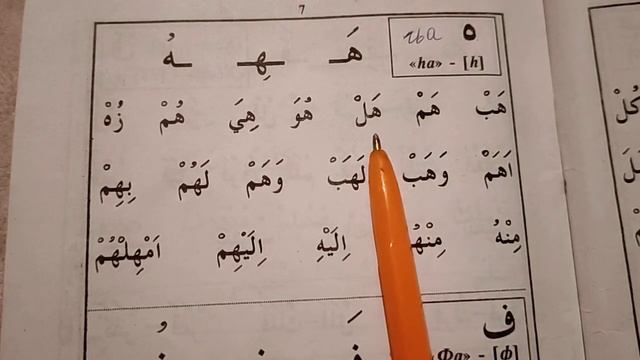 7
ه гьа
«ha» - [h]
هَـ ـهِـ ـهُ
هَبْ هَمْ هَلْ هُوَ هِيَ هُمْ زُهْ
اَهَمْ وَهَبْ لَهَبْ وَهَمْ لَهُمْ بِهِمْ
مِنْهُ اِلَيْهِ اِلَيْهِمْ اَمْهِلْهُمْ
ف
«Фа» - [ф]
كُلْ